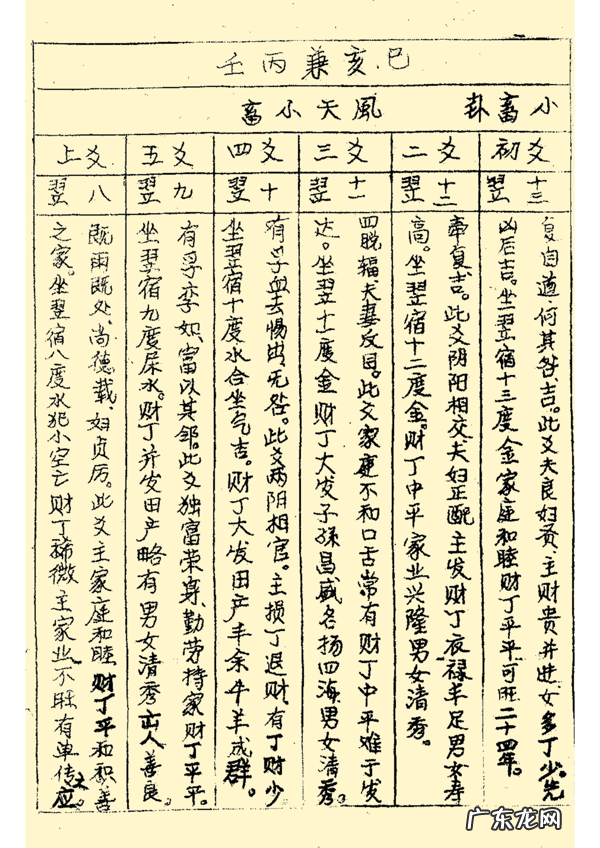 巳亥兼丙壬
小畜卦　風天小畜
初爻
翌十三
复自道,何其咎吉。此爻夫良妇贤,主财贵并进,女多丁少。先
凶后吉。坐翌宿十三度金,家庭和睦,财丁平平,可旺二十四年。
二爻
翌十二
牵复吉。此爻阴阳相交,夫妇正配,主发财丁,衣禄丰足,男女寿
高。坐翌宿十二度金。财丁中平,家业兴隆,男女清秀。
三爻
翌十一
四脱辐,夫妻反目。此爻家庭不和,口舌常有,财丁中平,难于发
达。坐翌十一度金,财丁大发,子孫昌盛,名扬四海,男女清秀。
四爻
翌十
有孚血去惕出,无咎。此爻两阳相官。主损丁退财。有丁财少
坐翌宿十度水合坐气吉。财丁大发,田产丰余,牛羊成群。
五爻
翌九
有孚孪如,富以其邻。此爻独富荣身,勤劳持家,财丁平平。
坐翌宿九度尿水。财丁并发,田产略有,男女清秀,出人善良。
上爻
翌八
既雨既处,尚德载,妇贞厉。此爻主家庭和睦,财丁平和,积善
之家。坐翌宿八度水犯小空亡,财丁稀微,主家业不旺,有单传之应。
广东龙网